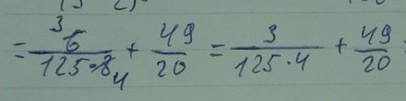 = 6/(125·8) + 49/20 = 3/(125·4) + 49/20
3
4